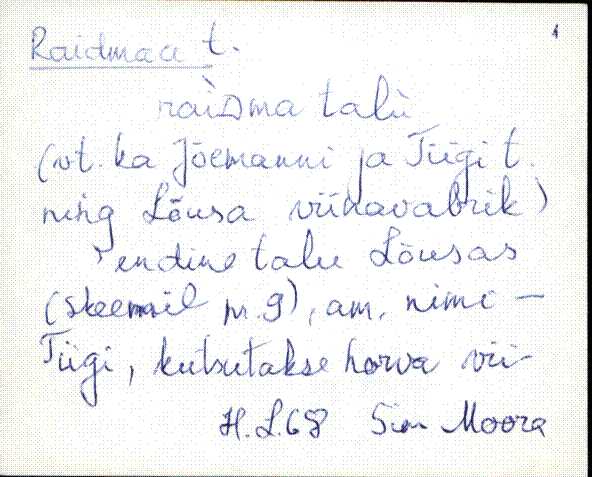 1
Raidmaa t.
raìᴅma talù
(vt. ka Jõemanni ja Tiigi t.
ning Lõusa viinavabrik)
endine talu Lõusas
(skeemil nr. 9), am. nimi –
Tiigi, kutsutakse horva vii-
H. L. 68 Sim Moora